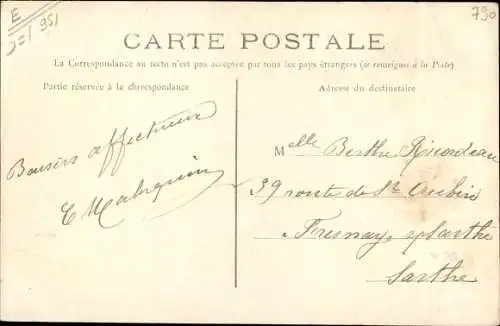 E
951
790
CARTE POSTALE
La Correspondance au recto n'est pas acceptée par tous les pays étrangers (se renseigner à la Poste)
Partie réservée à la correspondance
Adresse du destinataire
Baisers affectueux
Melle Berthe
39 route de St Aubin
Fresnay s/Sarthe
Sarthe